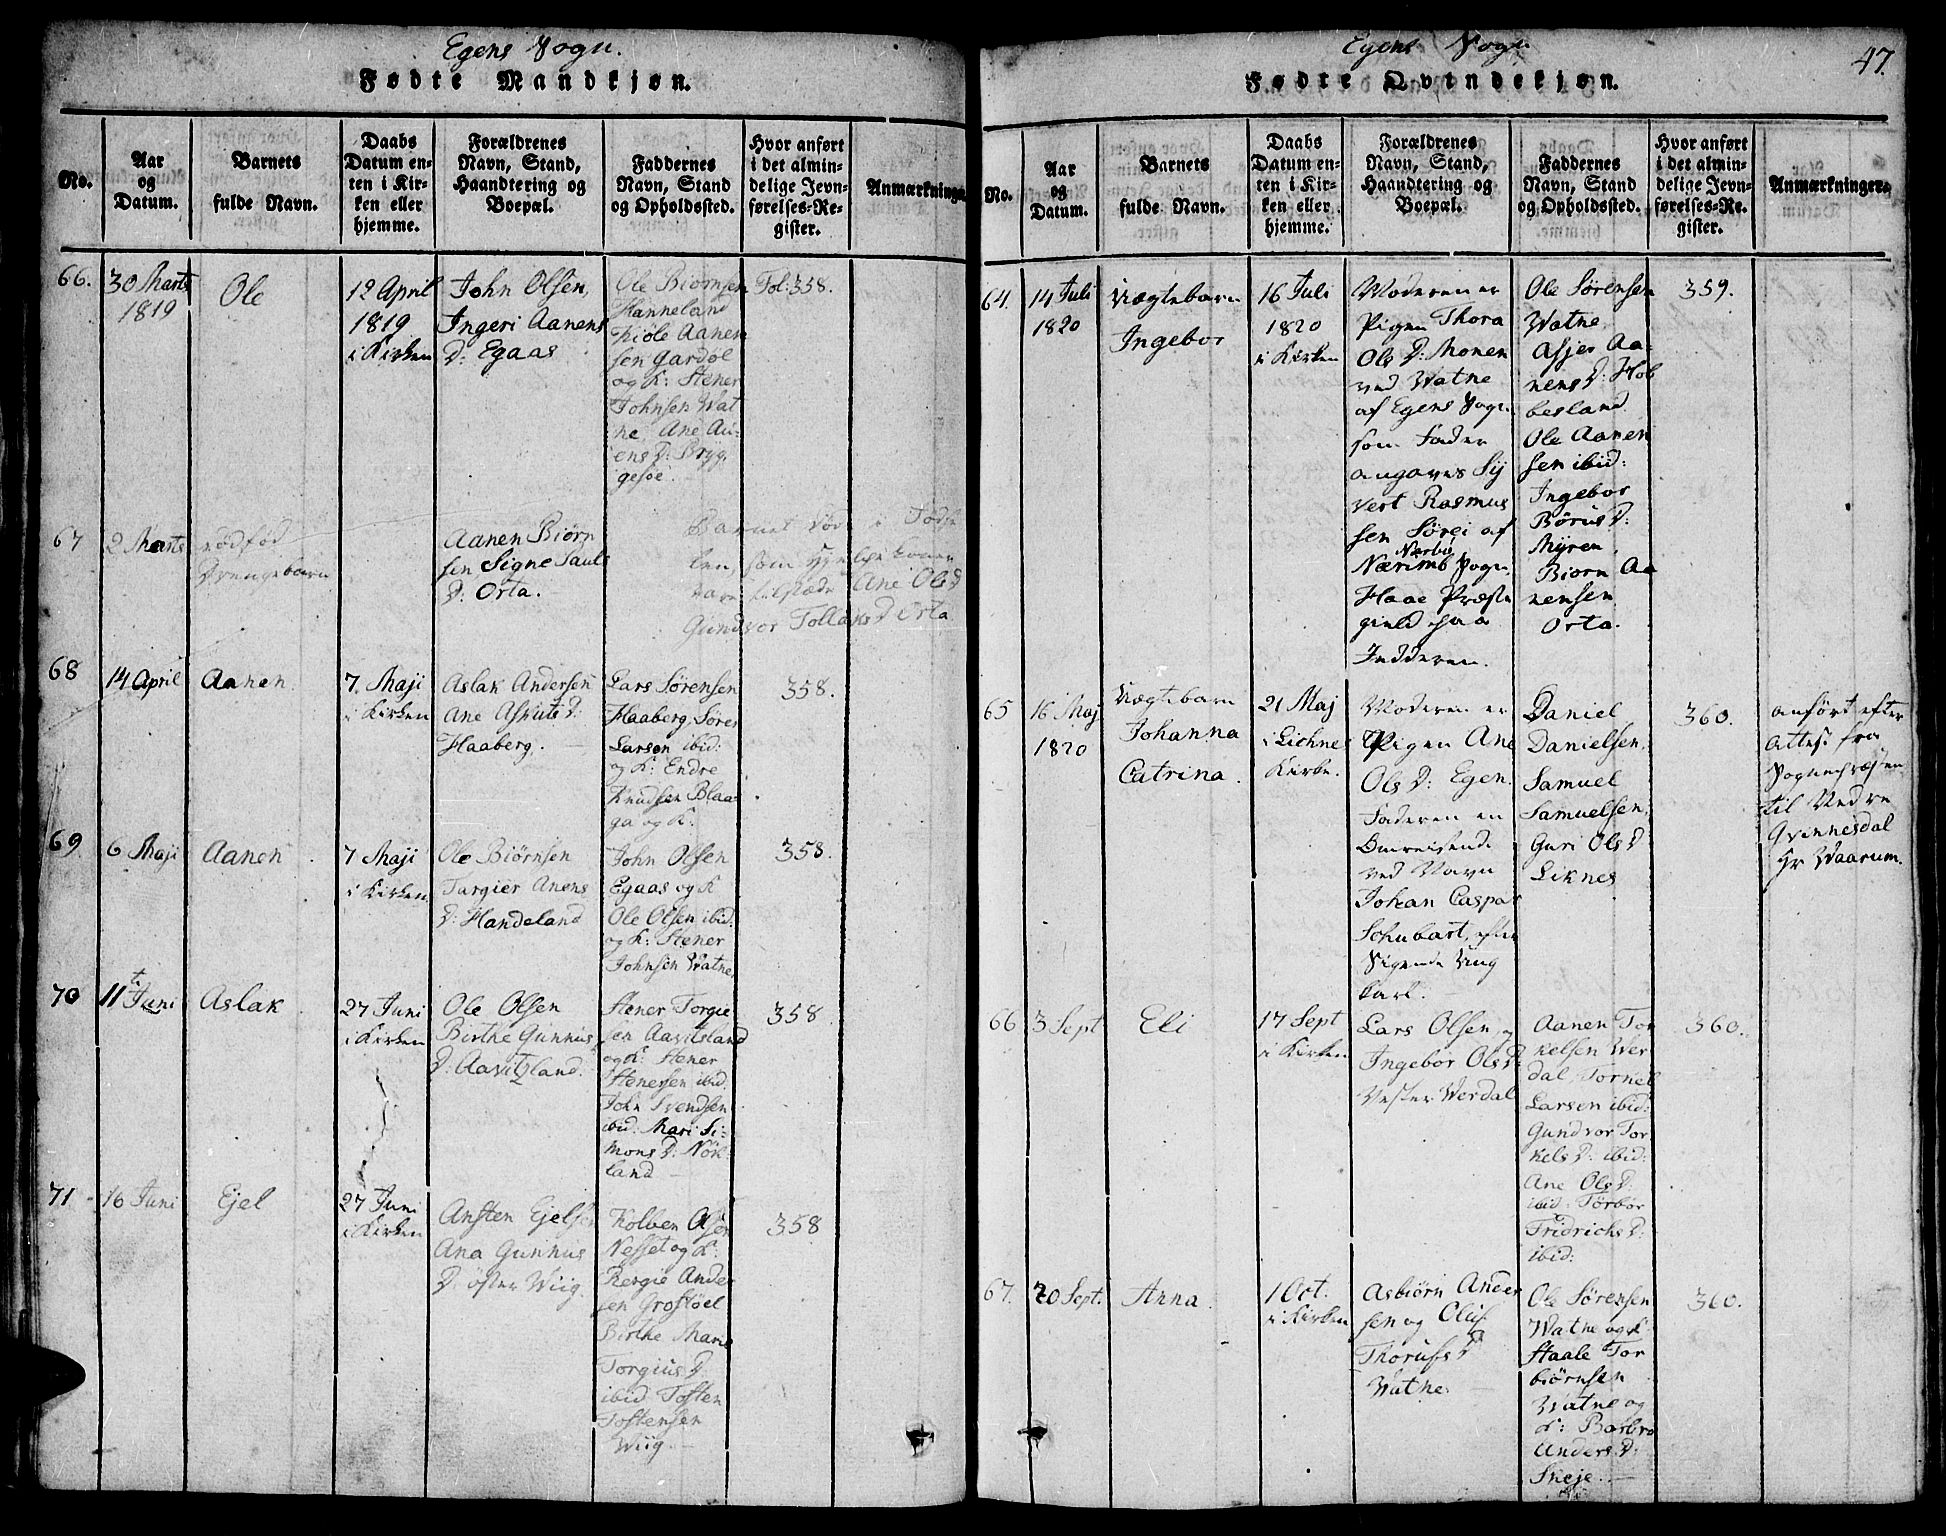 Egens Sogn.
Fødte Mandkjøn.
No.
Aar
og
Datum.
Barnets
fulde Navn.
Daabs
Datum en-
ten i Kir-
ken eller
hjemme.
Forældrenes
Navn, Stand,
Haandtering og
Boepæl.
Faddernes
Navn, Stand
og Opholdssted.
Hvor anført
i det almin-
delige Jevn-
førelses-Re-
gister.
Anmærkninger
66.
30 Marts
1819
Ole
12 April
1819
i Kirken
John Olsen,
Ingeri Aanens
D: Egaas
Ole Biørnsen
Hanneland
Aanen
sen Gardøl
og K: Stener
Johnsen Wat
ne, Ane Au-
ens D: Bryg
gesøe.
Fol: 358.
67
2 Marts
dødfød
Drengebarn
Aanen Biørn
sen Signe Sauls
D: Orta.
Barnet døde i Føds-
len, som
vare tilstæde Ane Ols D
Gundvor Tollaks D Orta
68
14 April
Aanen
7. Maji
i Kirken
Aslak Andersen
Ane Asluts D:
Haaberg.
Lars Sørensen
Haaberg, Søren
Larsen ibid:
og K: Endre
Knudsen Blaa-
ga og K:
358.
69.
6 Maji
Aanen
7 Maji
i Kirken
Ole Biørnsen
Targier Anens
D: Handeland
John Olsen
Egaas og K
Ole Olsen ibid:
og K: Stener
Johnsen Watne
358.
70
11t Juni
Aslak
27 Juni
i Kirken
Ole Olsen
Birthe Gunnus
D: Aavitzland.
Stener Torgie
sen Aavitsland
og K: Stener
Stenersen ibid.
John Svendsen
ibid: Mari Si-
mons D: Nøk-
land
358
71
16 Juni
Ejel
27 Juni
i Kirken
Ansten Ejelsen
Ana Gunnus
D: øster Wiig.
Kolben Olsen
Nesset og K:
Bergie Ander
sen Grostøel
Birthe Marie
Torgius D
ibid Tosten
Tostensen
Wiig.
358
Egens Sogn
47.
Fødte Qvindekjøn.
No.
Aar
og
Datum.
Barnets
fulde Navn.
Daabs
Datum en-
ten i Kir-
ken eller
hjemme.
Forældrenes
Navn, Stand,
Haandtering og
Boepæl.
Faddernes
Navn, Stand
og Opholdssted.
Hvor anført
i det almin-
delige Jevn-
førelses-Re-
gister.
Anmærkninger.
64.
14 Juli
1820
Uægtebarn
Ingebor
16 Juli
1820
i Kirken
Moderen er
Pigen Thora
Ols D: Monen
ved Watne
af Egens Sogn
som Fader
angaves Sy
vert Rasmus
sen Sørei af
Nærbø
Nærimb Sogn,
Haae Præste
gield paa
Jedderen.
Ole Sørensen
Watne,
Asjer Aa-
nens D: Hob
besland
Ole Aanen
sen ibid:
Ingebor
Børius D:
Myren,
Biorn Aa
nensen
Orta.
359.
65
16 Maj
1820
Uægtebarn
Johanna
Catrina.
21 Maj
i Lichnes
Kirke.
Moderen er
Pigen Ane
Ols D: Egen.
Faderen en
Omreisende
ved Navn
Johan Caspar
Schubart, efter
Sigende Ung
karl.
Daniel
Danielsen,
Samuel
Samuelsen,
Guri Ols D
Liknes
360.
anført efter
Attest fra
Sognepræsten
til Nedre
Qvinnesdal
Hr Waarum.
66
3 Sept
Eli
17 Sept
i Kirken
Lars Olsen og
Ingebor Ols D:
Vester Werdal
Aanen Tor
kelsen Wer
dal, Tornel
Larsen ibid:
Gundvor Tor
kels D: ibid:
Ane Ols D:
ibid: Torbor
Fridrichs D:
ibid:
360.
67.
20 Sept.
Anna.
1 Oct.
i Kirken
Asbiørn Ander
sen og Oluf
Thorufs D
Watne.
Ole Sørensen
Watne og K
Staale Tor
biørnsen
Watne og
K: Barbro
Anders D:
Sneje.
360.